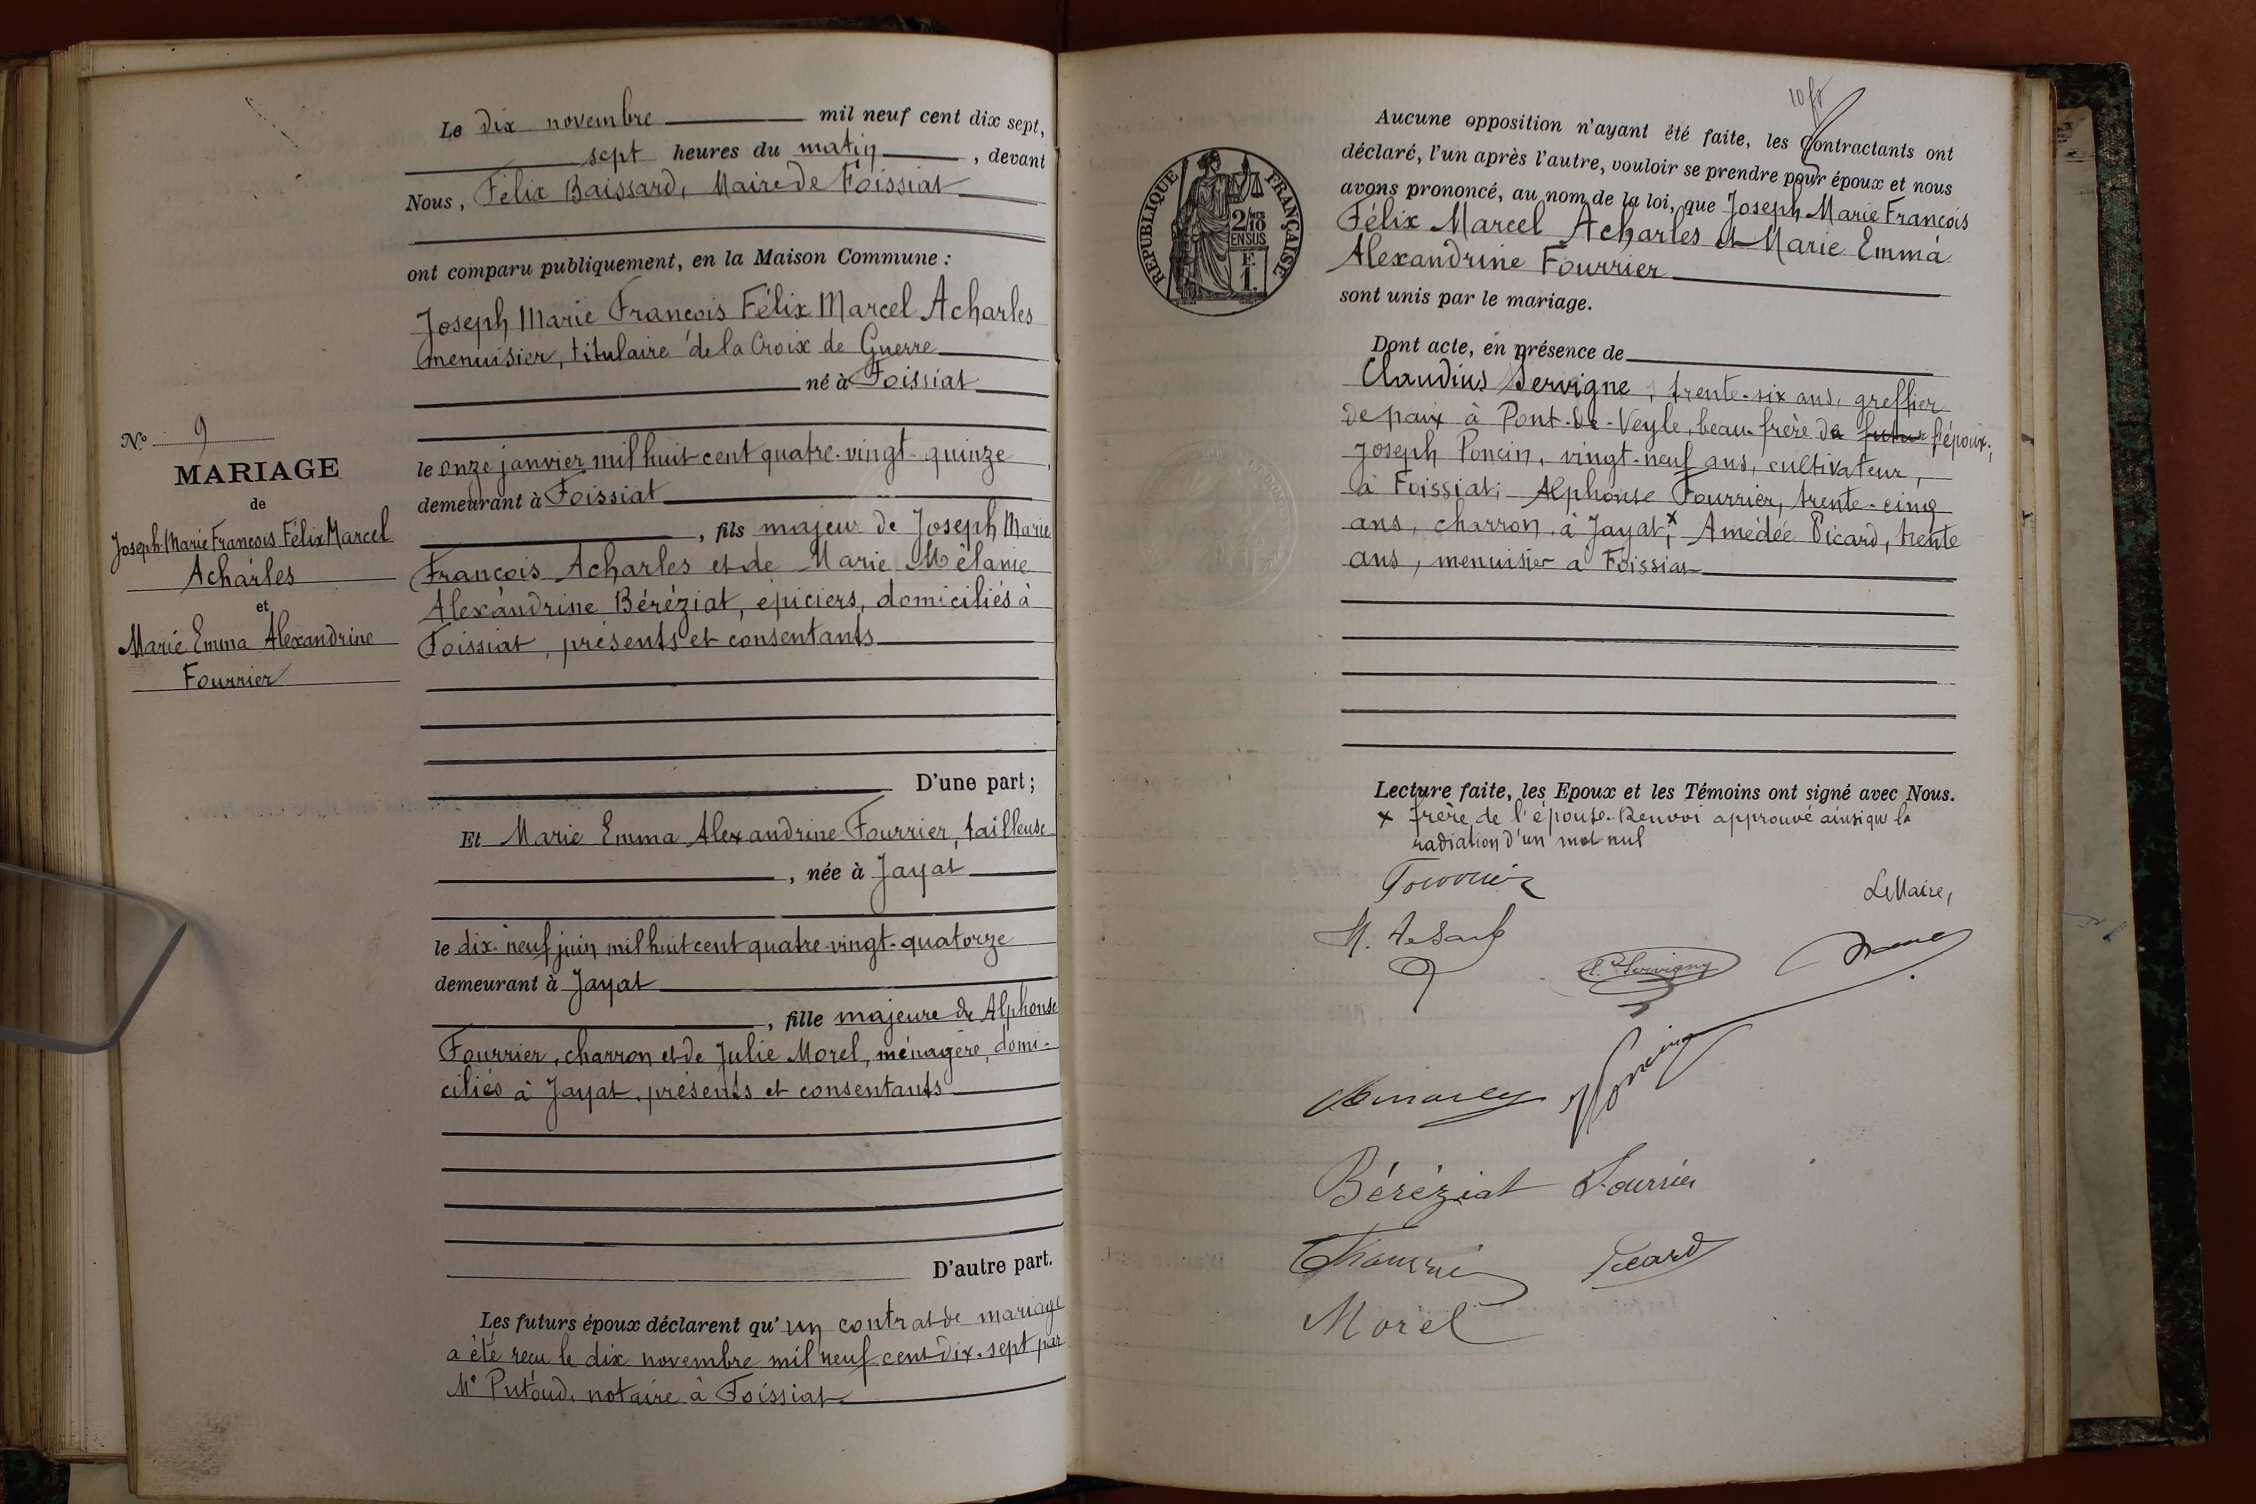 Le dix novembre mil neuf cent dix sept,
sept heures du matin, devant
Nous, Félix Baissard, Maire de Foissiat
ont comparu publiquement, en la Maison Commune :
Joseph Marie François Félix Marcel Acharles
menuisier, titulaire de la Croix de Guerre
né à Foissiat
le onze janvier mil huit cent quatre-vingt-quinze,
demeurant à Foissiat
, fils majeur de Joseph Marie
François Acharles et de Marie Mélanie
Alexandrine Béréziat, épiciers, domiciliés à
Foissiat, présents et consentants
D'une part ;
Et Marie Emma Alexandrine Fourrier, tailleuse
, née à Jayat
le dix-neuf juin mil huit cent quatre-vingt-quatorze
demeurant à Jayat
, fille majeure de Alphonse
Fourrier, charron et de Julie Morel, ménagère, domi-
ciliés à Jayat, présents et consentants
D'autre part.
Les futurs époux déclarent qu'un contrat de mariage
a été reçu le dix novembre mil neuf cent dix-sept par
Me Putoud, notaire à Foissiat
No 9
MARIAGE
de
Joseph Marie François Félix Marcel
Acharles
et
Marie Emma Alexandrine
Fourrier
10 fr
RÉPUBLIQUE FRANÇAISE
2/10
EN SUS
F.
1.
Aucune opposition n'ayant été faite, les Contractants ont
déclaré, l'un après l'autre, vouloir se prendre pour époux et nous
avons prononcé, au nom de la loi, que Joseph Marie François
Félix Marcel Acharles et Marie Emma
Alexandrine Fourrier
sont unis par le mariage.
Dont acte, en présence de
Claudius Servigne, trente-six ans, greffier
de paix à Pont-de-Veyle, beau-frère de futur l'époux;
Joseph Poncin, vingt-neuf ans, cultivateur,
à Foissiat; Alphonse Fourrier, trente-cinq
ans, charron à Jayat x; Amédée Picard, trente
ans, menuisier à Foissiat
Lecture faite, les Epoux et les Témoins ont signé avec Nous.
x frère de l'épouse. Renvoi approuvé ainsi que la
radiation d'un mot nul
Fourrier
Le Maire,
Servigne
Poncin
Béréziat Fourrier
Picard
Morel